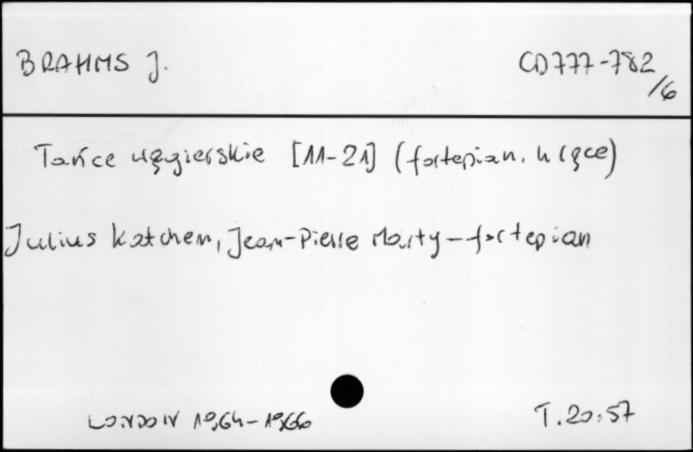 BRAHMS J. CD777-782
/6
Tańce węgierskie [11-21] (fortepian. 4 ręce)
Julius Katchen, Jean-Pierre Marty - fortepian
LONDON 1964-1966 T. 20:57